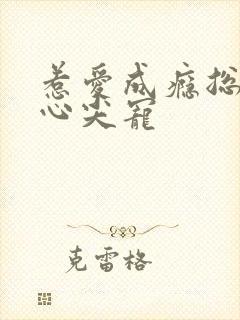 惹爱成瘾总
心尖宠
克雷格